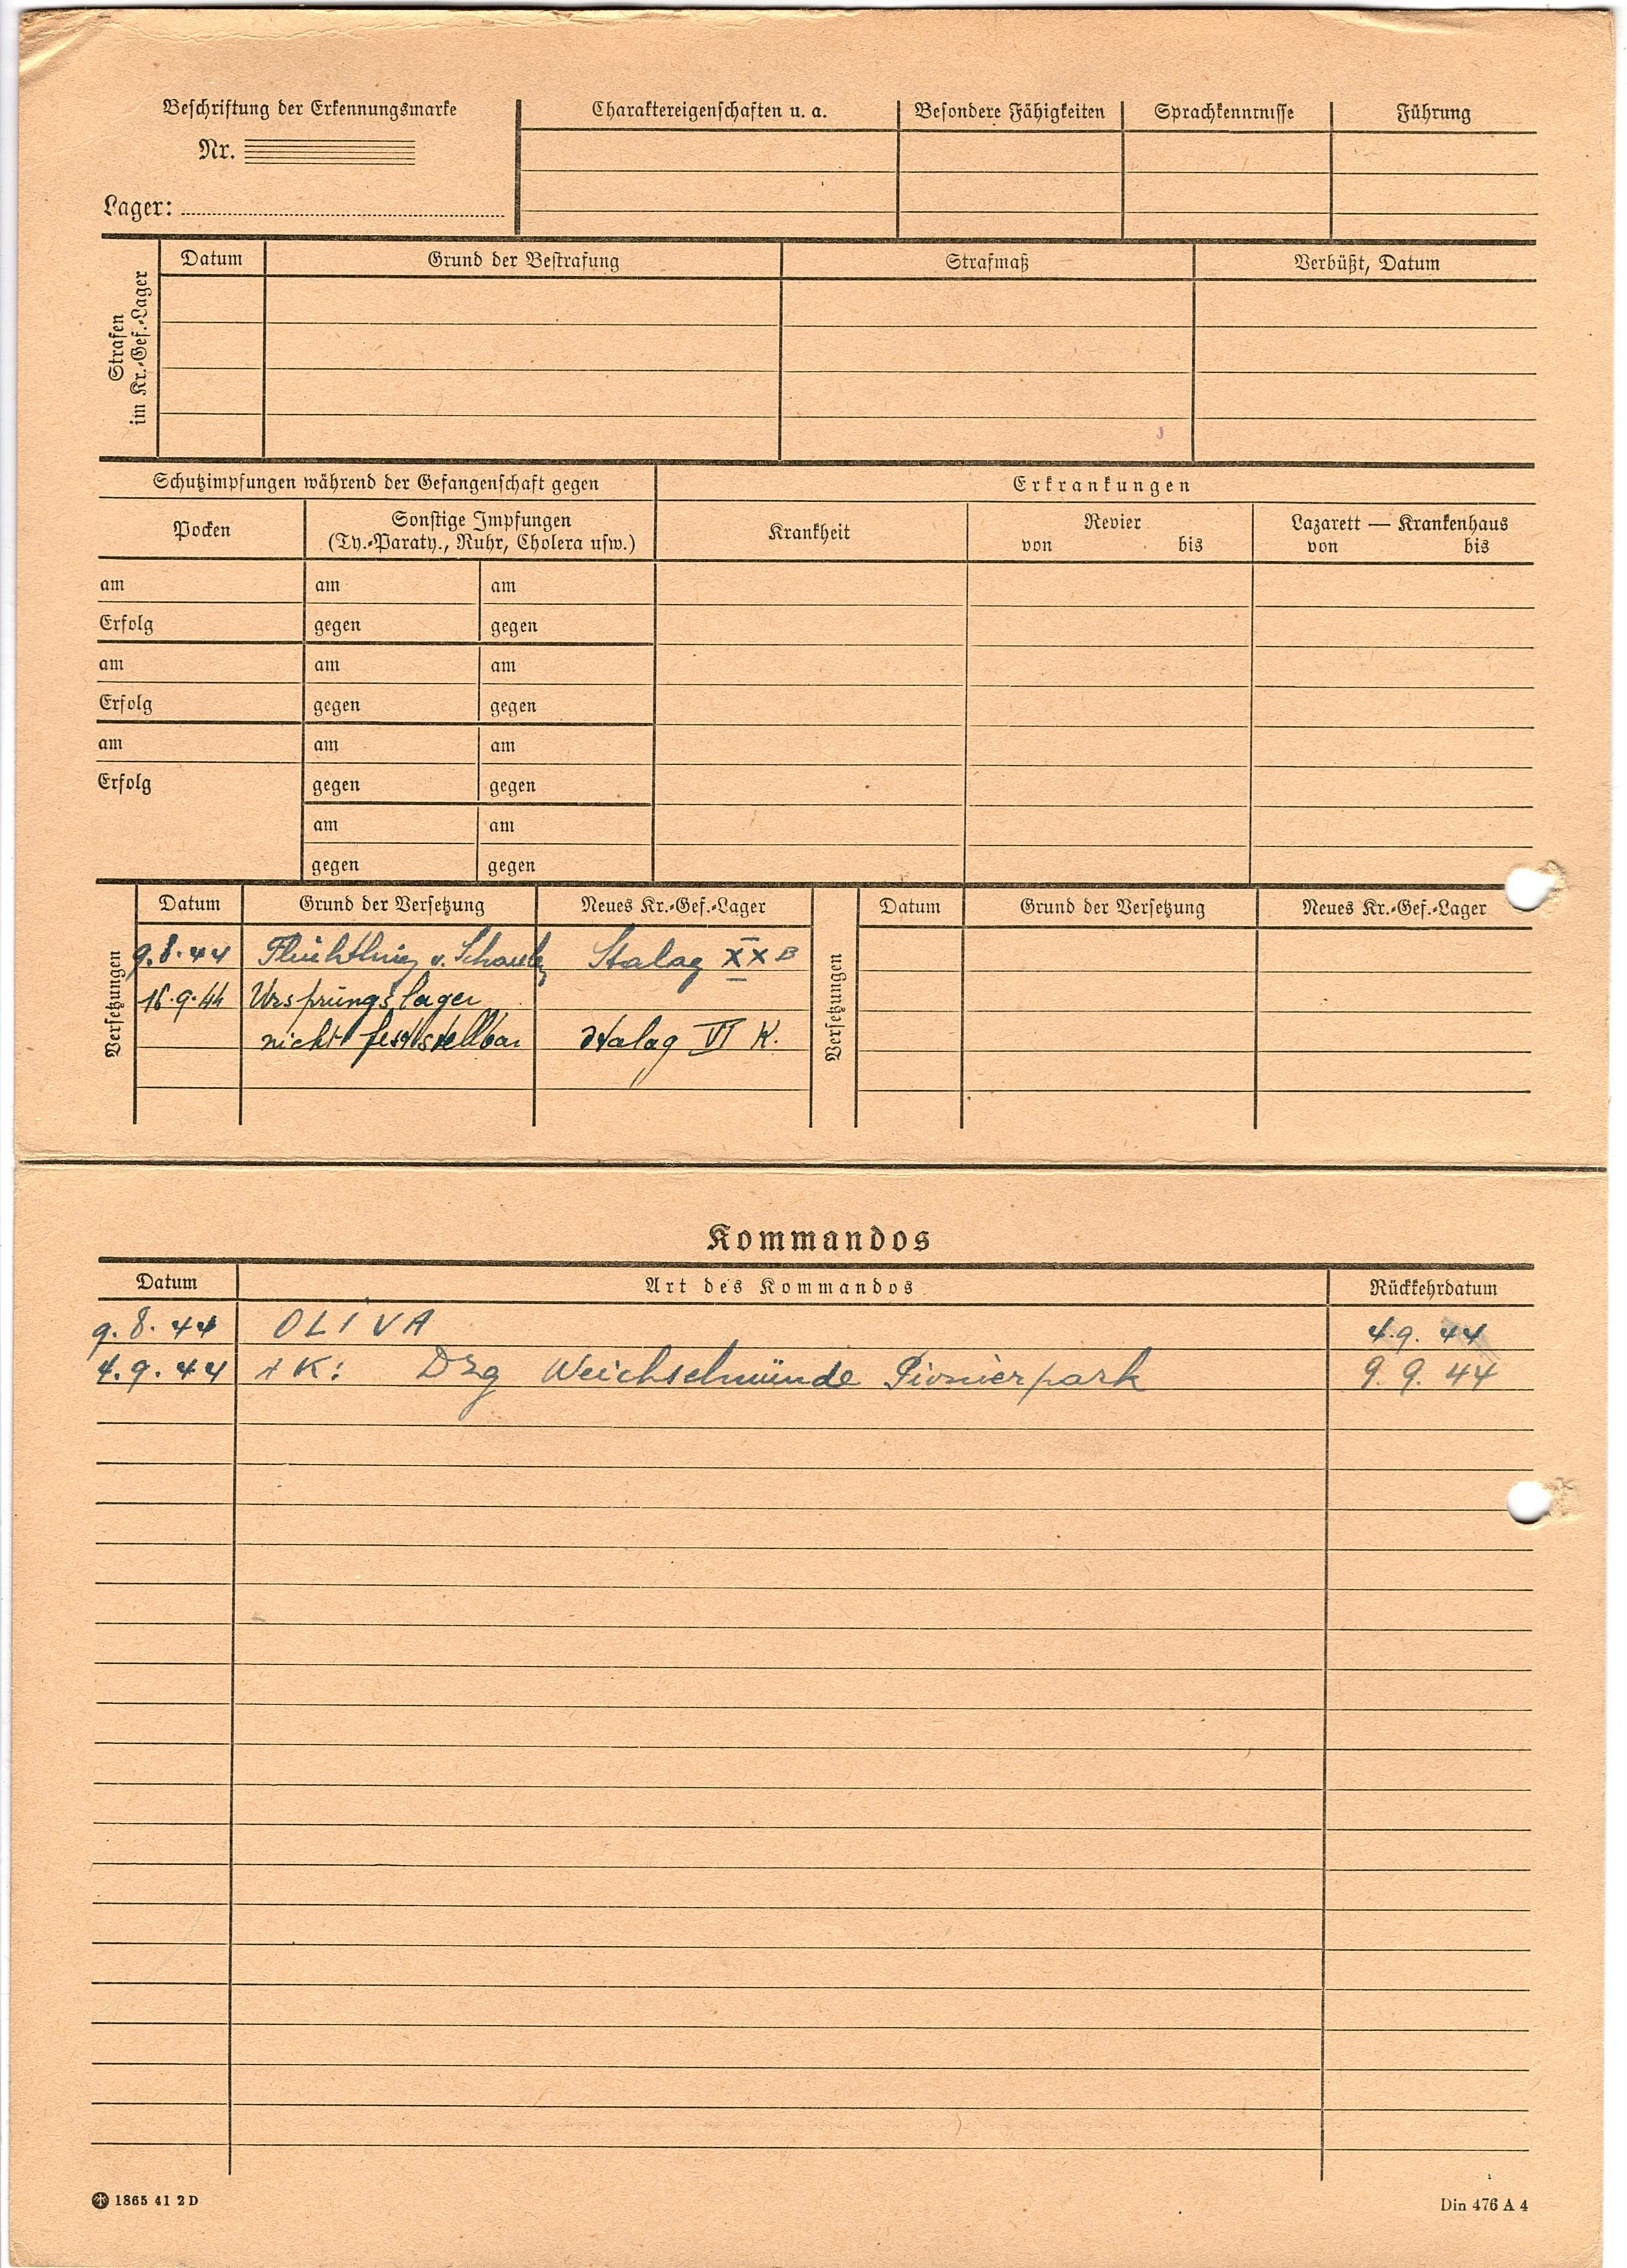 Beschriftung der Erkennungsmarke
Nr.
Lager:
Charaktereigenschaften u. a.
Besondere Fähigkeiten
Sprachkenntnisse
Führung
Strafen
im Kr.-Gef.-Lager
Datum
Grund der Bestrafung
Strafmaß
Verbüßt, Datum
Schutzimpfungen während der Gefangenschaft gegen
Erkrankungen
Pocken
Sonstige Impfungen
(Ty.-Paraty., Ruhr, Cholera usw.)
Krankheit
Revier
von bis
Lazarett — Krankenhaus
von bis
am am am
Erfolg gegen gegen
am am am
Erfolg gegen gegen
am am am
Erfolg gegen gegen
am am
gegen gegen
Versetzungen
Datum Grund der Versetzung Neues Kr.-Gef.-Lager
9.8.44 Flüchtling v. Stalag XX B
16.9.44 Ursprungslager
nicht feststellbar Stalag VI K.
Versetzungen
Datum Grund der Versetzung Neues Kr.-Gef.-Lager
Kommandos
Datum Art des Kommandos Rückkehrdatum
9.8.44 OLIVA 4.9.44
4.9.44 K: Dzg Weichselmünde Pionierpark 9.9.44
1865 41 2 D
Din 476 A 4